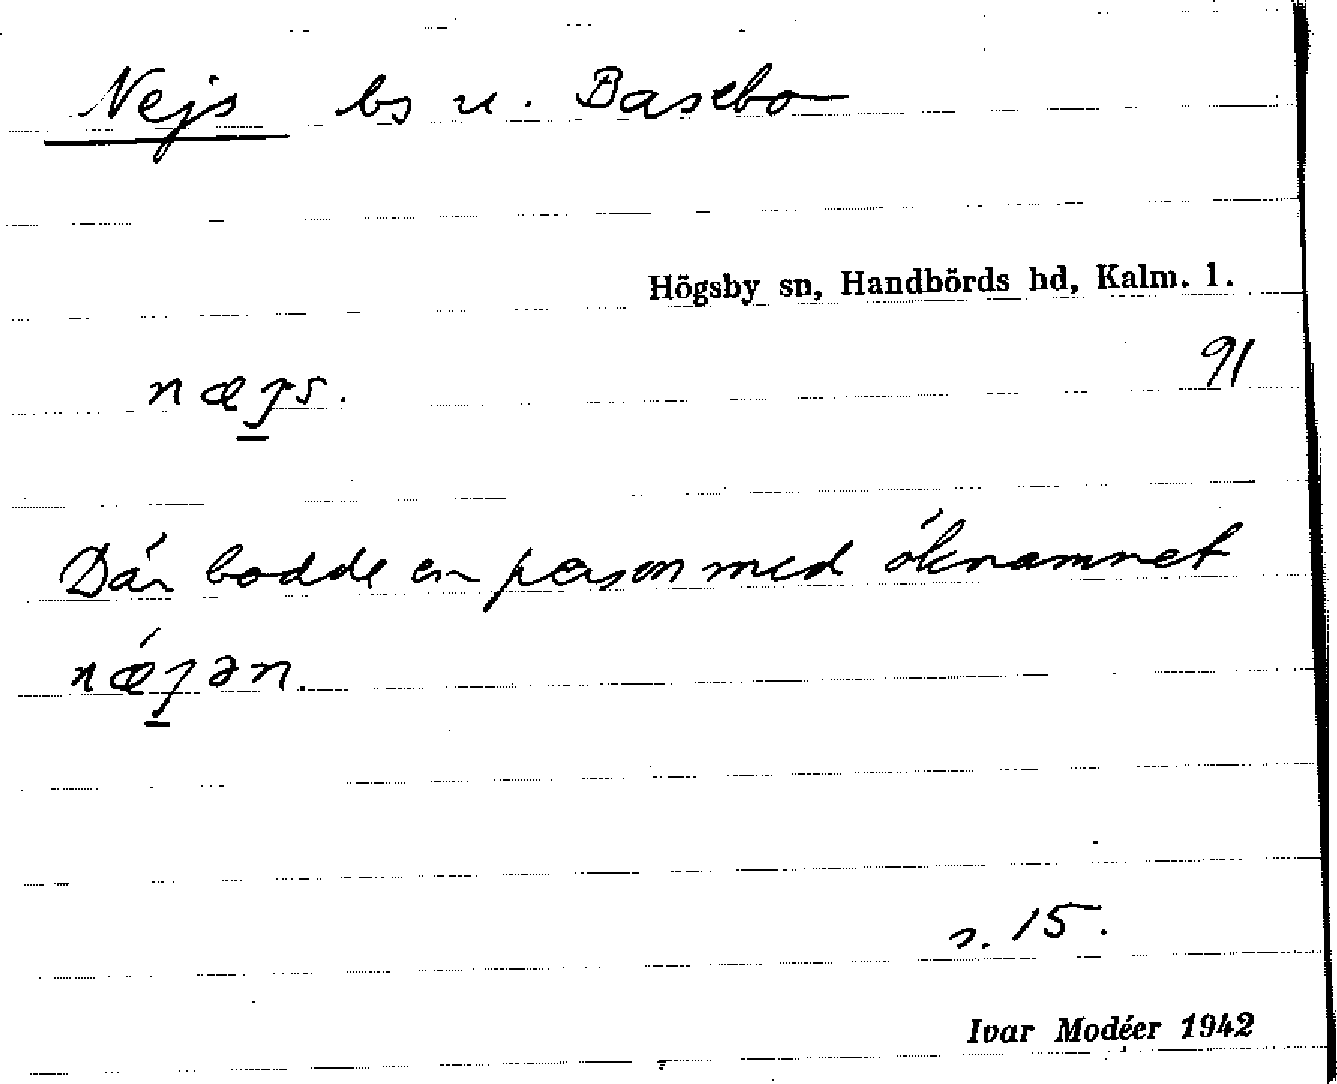 Nejs bs u. Basebo
Högsby sn, Handbörds hd, Kalm. l.
91
næjs.
Där bodde en person med öknamnet
nǽjən.
s. 15.
Ivar Modéer 1942